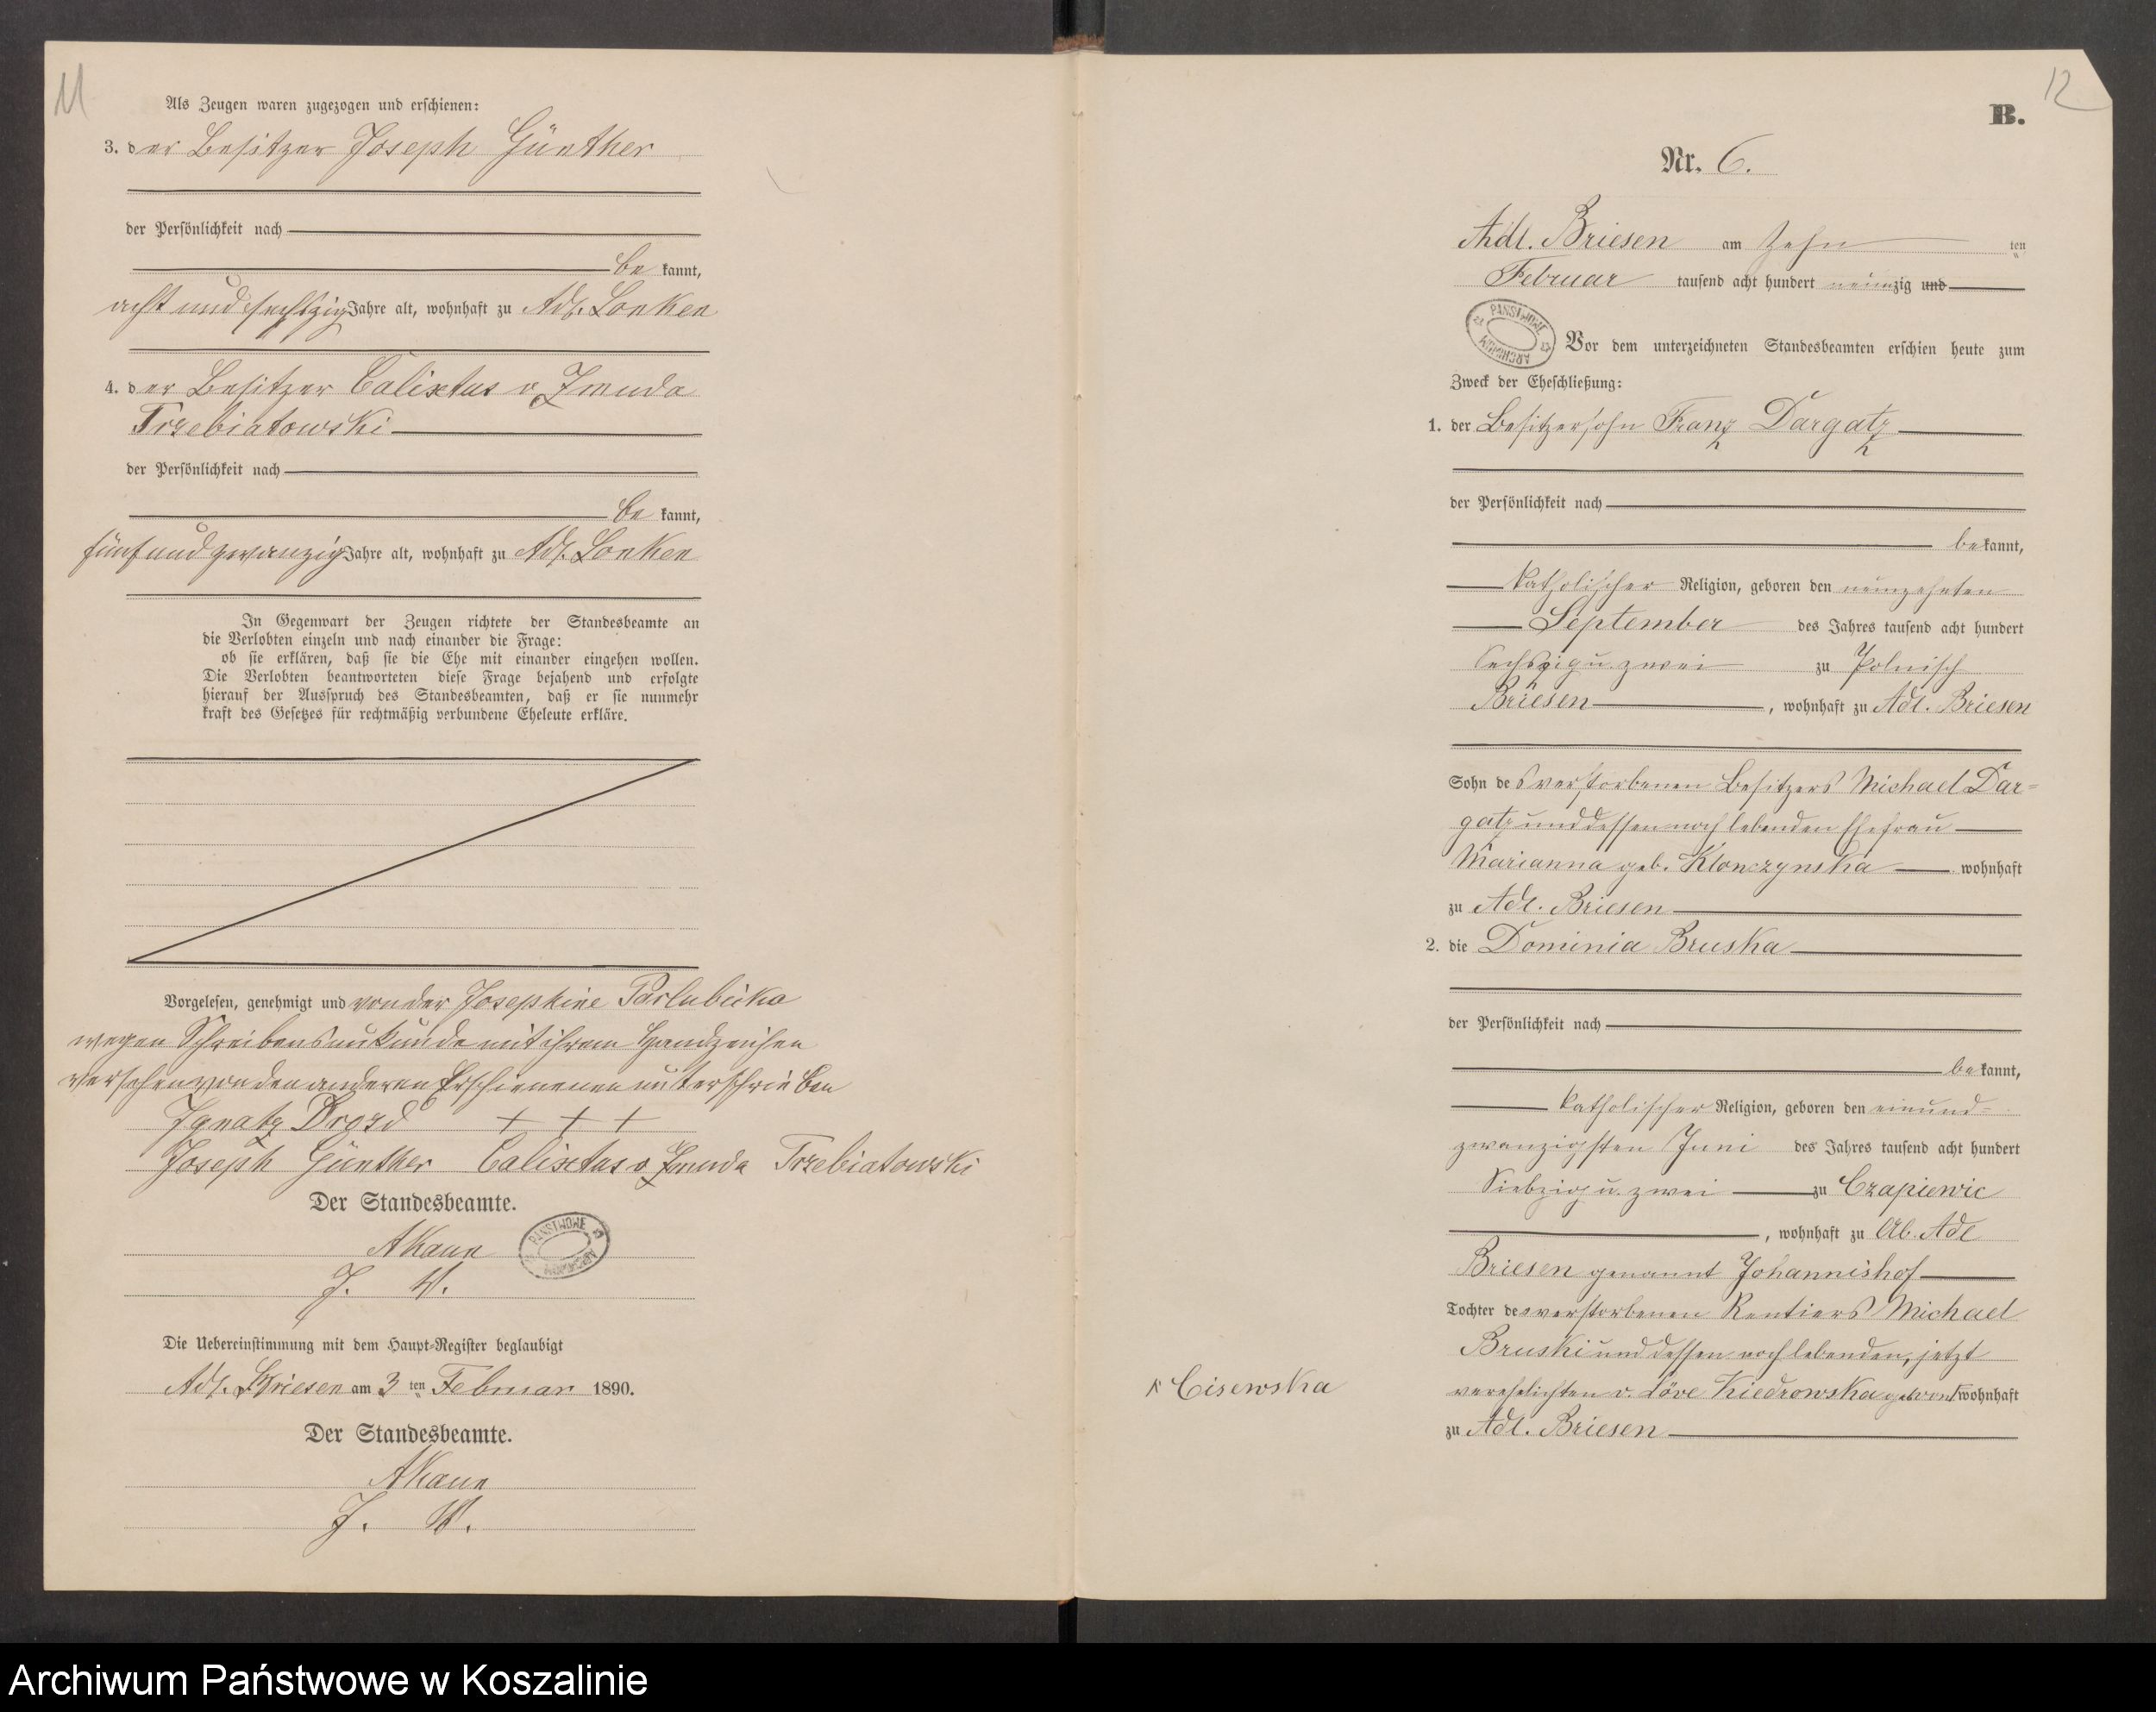 11
Als Zeugen waren zugezogen und erschienen:
3. der Besitzer Joseph Günther
der Persönlichkeit nach
be kannt,
acht und sechszig Jahre alt, wohnhaft zu Adl. Lonken
4. der Besitzer Calixtus v. Zmuda
Trzebiatowski
der Persönlichkeit nach
be kannt,
fünf und zwanzig Jahre alt, wohnhaft zu Adl. Lonken
In Gegenwart der Zeugen richtete der Standesbeamte an
die Verlobten einzeln und nach einander die Frage:
ob sie erklären, daß sie die Ehe mit einander eingehen wollen.
Die Verlobten beantworteten diese Frage bejahend und erfolgte
hierauf der Ausspruch des Standesbeamten, daß er sie nunmehr
kraft des Gesetzes für rechtmäßig verbundene Eheleute erkläre.
Vorgelesen, genehmigt und von der Josephine Parlubicka
wegen Schreibensunkunde mit ihrem Handzeichen
versehen von den anderen Erschienenen unterschrieben
Ignatz Drozd + + +
Joseph Günther Calixtus v Zmuda Trzebiatowski
Der Standesbeamte.
AKaun
J. V.
PAŃSTWOWE ARCHIWUM
Die Uebereinstimmung mit dem Haupt-Register beglaubigt
Adl. Briesen am 3 ten Februar 1890.
Der Standesbeamte.
AKaun
J. V.
12
B.
Nr. 6.
Adl. Briesen am zehn ten
Februar tausend acht hundert neunzig und
PAŃSTWOWE ARCHIWUM
Vor dem unterzeichneten Standesbeamten erschien heute zum
Zweck der Eheschließung:
1. der Besitzersohn Franz Dargatz
der Persönlichkeit nach
be kannt,
katholischer Religion, geboren den neunzehnten
September des Jahres tausend acht hundert
sechszig u. zwei zu Polnisch
Briesen, wohnhaft zu Adl. Briesen
Sohn des verstorbenen Besitzers Michael Dar-
gatz und dessen noch lebenden Ehefrau
Marianna geb. Klonczynska wohnhaft
zu Adl. Briesen
2. die Dominia Bruska
der Persönlichkeit nach
be kannt,
katholischer Religion, geboren den einund-
zwanzigsten Juni des Jahres tausend acht hundert
Siebzig u. zwei zu Czapiewic
, wohnhaft zu Ab. Adl
Briesen genannt Johannishof
Tochter des verstorbenen Rentiers Michael
Bruski und dessen noch lebenden, jetzt
verehelichten v. Löve Kiedrowska geb von wohnhaft
Cisewska
zu Adl. Briesen
Archiwum Państwowe w Koszalinie